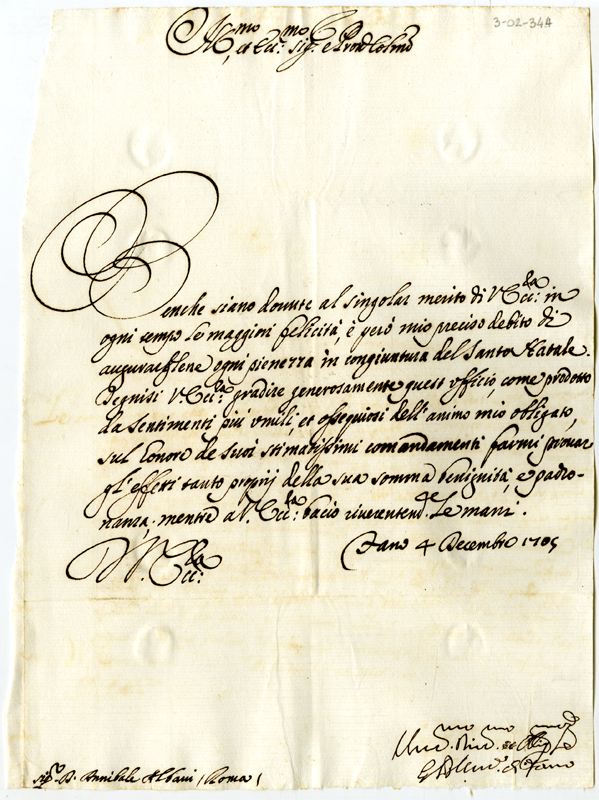 3-02-34A
Ill.mo et Ecc.mo Sig.r e Pron Colmo
Benche siano dovute al singolar merito di V. Ecc.za in
ogni tempo le maggiori felicità, è però mio preciso debito di
augurarglene ogni pienezza in congiuntura del Santo Natale.
Degnisi V. Ecc.za gradire generosamente quest'vfficio, come prodotto
da sentimenti più vmili, et ossequiosi dell'animo mio obligato,
sul l'onore de suoi stimatissimi comandamenti farmi provar
gl'effetti tanto proprij della sua somma benignità, e padro-
nanza, mentre a V. Ecc.za bacio riverentem.te le mani.
D. V. Ecc.za
Fano 4 Decembre 1705
Sig.r D. Annibale Albani (Roma)
mo mo mo
di Fano